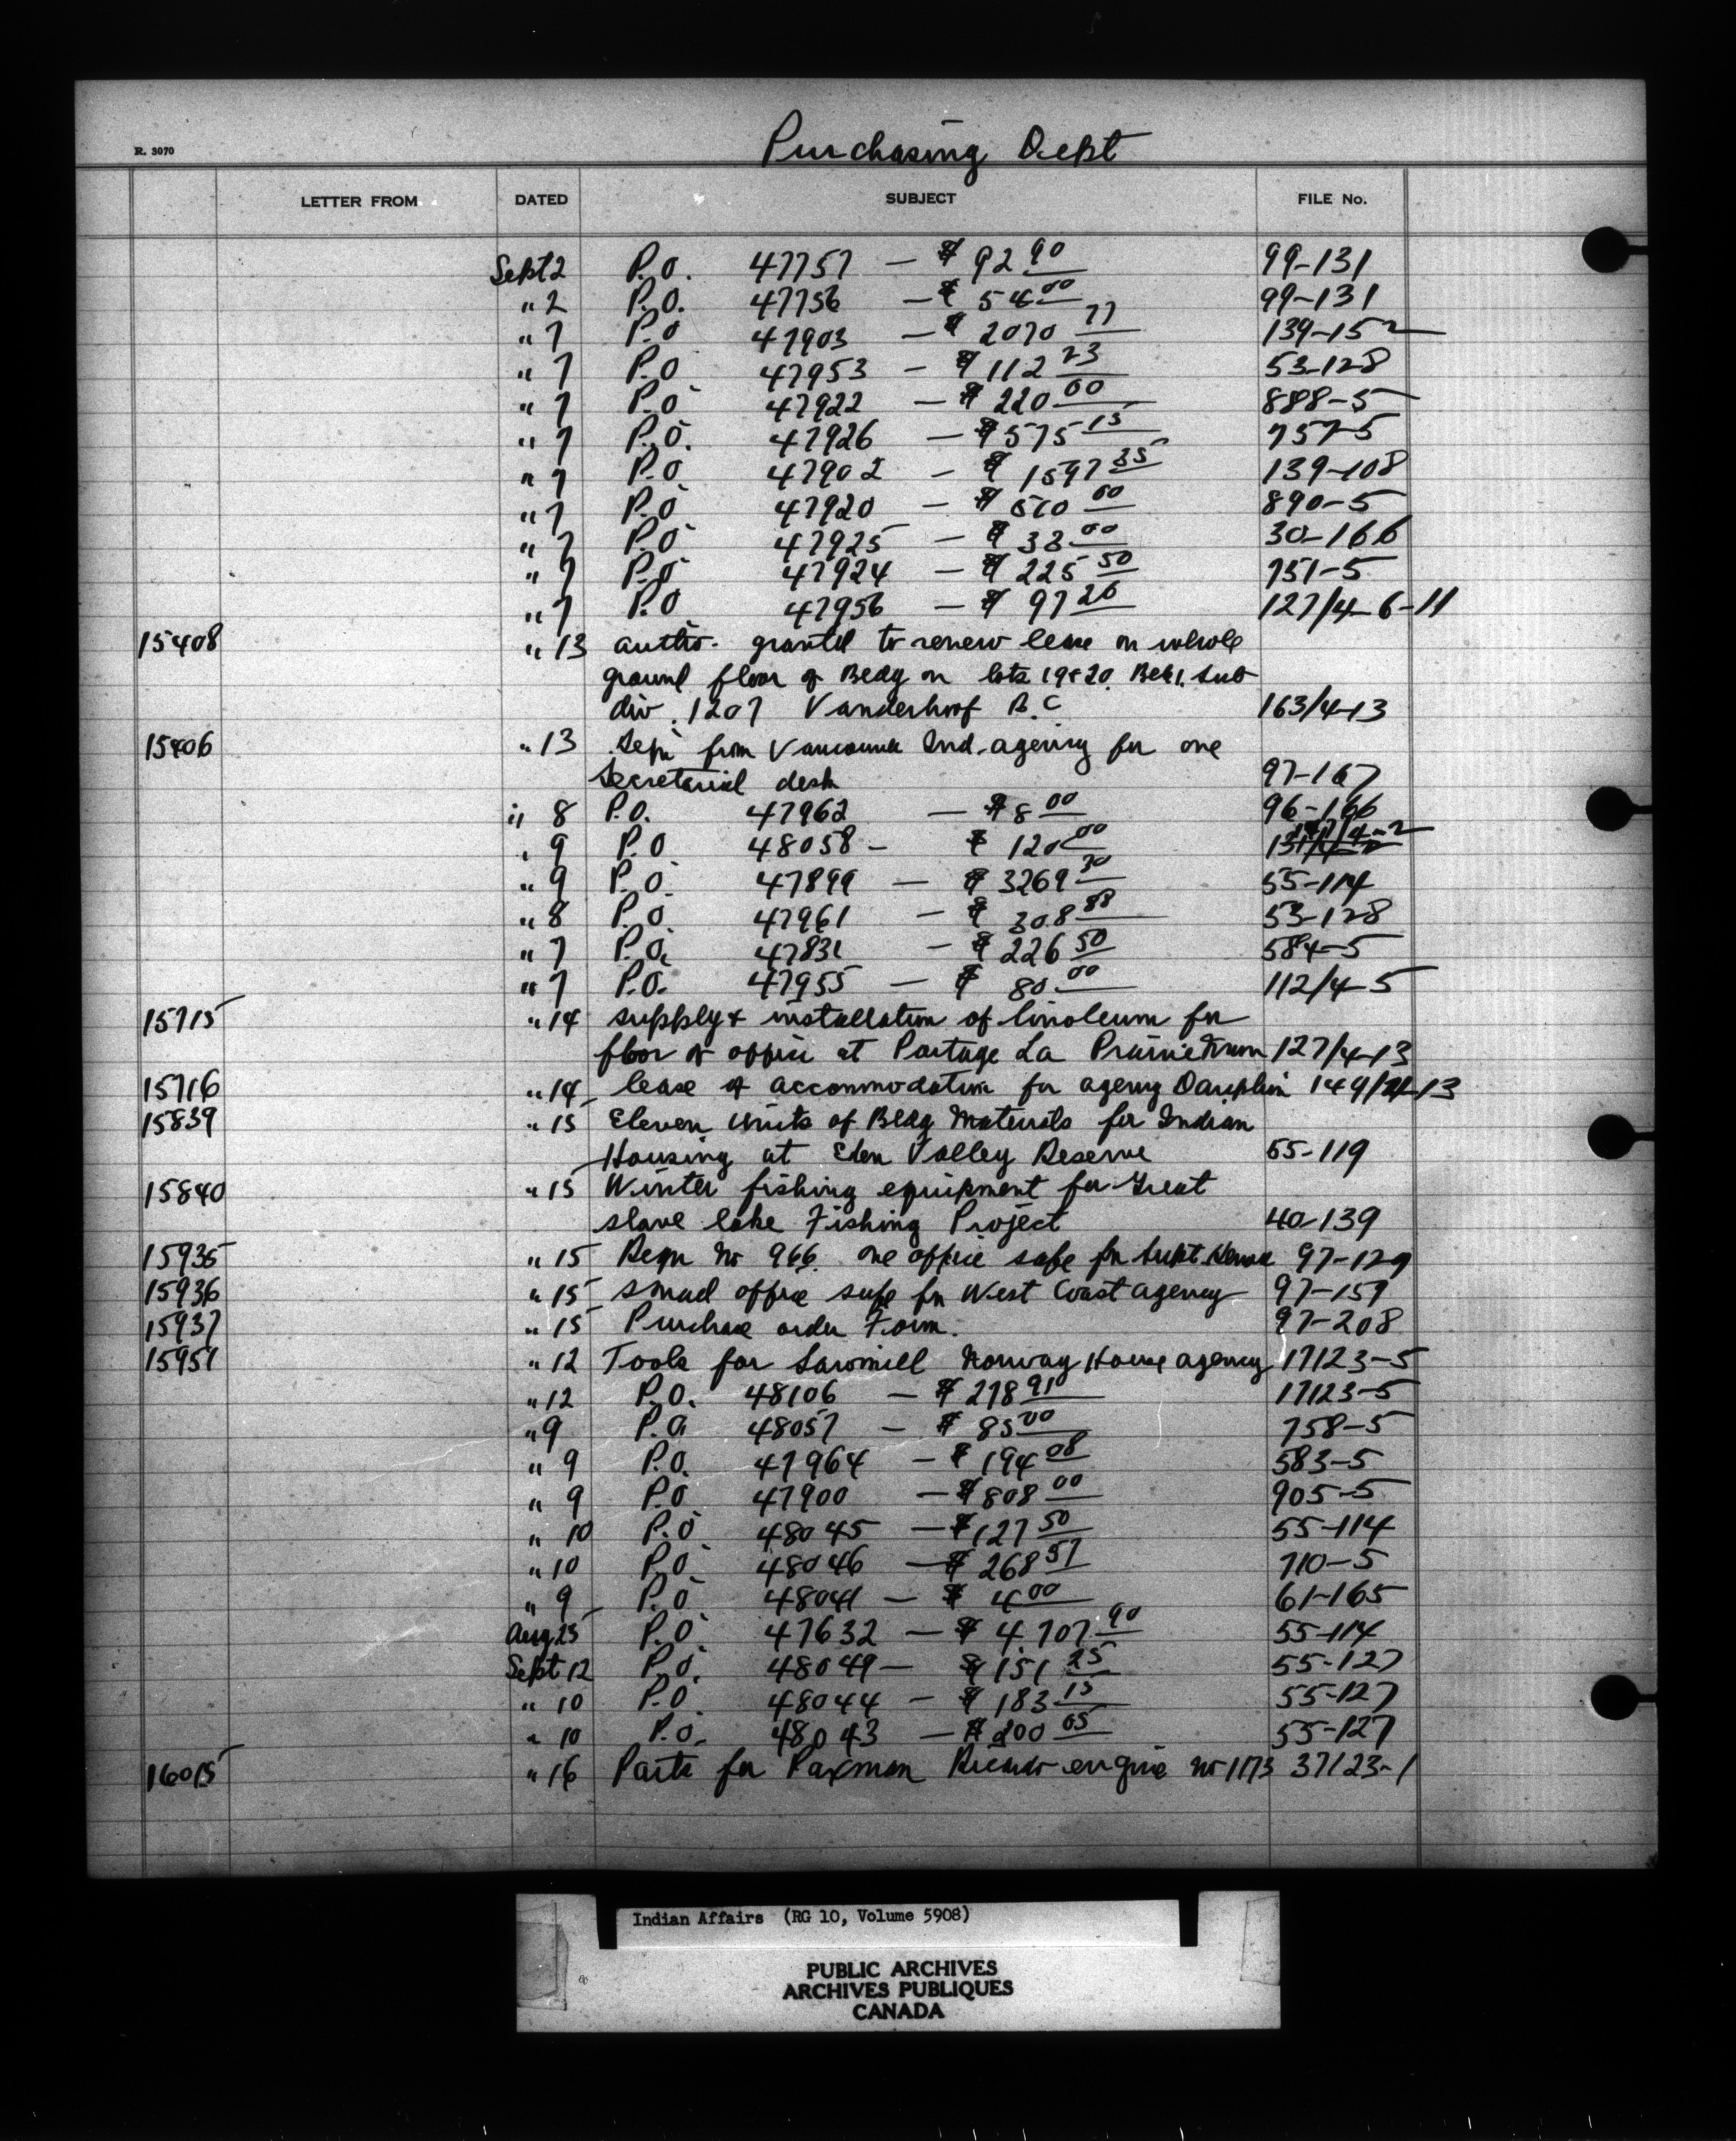 Purchasing Dept
R. 3070
LETTER FROM DATED SUBJECT FILE No.
Sept 2 P.O. 47757 — $ 92 90 99-131
" 2 P.O. 47756 — $ 54 00 99-131
" 7 P.O 47903 — $ 2070 77 139-152
" 7 P.O 47953 — $ 112 23 53-128
" 7 P.O 47922 — $ 220 00 888-5
" 7 P.O. 47926 — $ 575 15 757-5
" 7 P.O. 47902 — $ 1597 35 139-108
" 7 P.O 47920 — $ 570 00 890-5
" 7 P.O 47925 — $ 38 00 30-166
" 7 P.O 47924 — $ 225 50 751-5
" 7 P.O 47956 — $ 97 26 127/4-6-11
15408 " 13 autho. granted to renew lease on whole
ground floor of Bldg on lots 19 & 20. Blk 1. Sub
div. 1207 Vanderhoof B.C 163/4-13
15406 " 13 from Vancouver Ind. agency for one
Secretarial desk 97-167
" 8 P.O. 47962 — $ 8 00 96-166
" 9 P.O 48058 — $ 120 00 /4-2
" 9 P.O. 47899 — $ 3269 30 55-114
" 8 P.O 47961 — $ 308 88 53-128
" 7 P.O. 47831 — $ 226 50 584-5
" 7 P.O. 47955 — $ 80 00 112/4-5
15715 " 14 supply & installation of linoleum for
floor of office at Portage La Prairie 127/4-13
15716 " 14 lease of accommodation for agency Dauphin 149/4-13
15839 " 15 Eleven Units of Bldg Materials for Indian
Housing at Eden Valley Reserve 55-119
15840 " 15 Winter fishing equipment for Great
slave lake Fishing Project 40-139
15935 " 15 Reqn No 966. one office safe for Supt 97-129
15936 " 15 small office safe for West Coast agency 97-159
15937 " 15 Purchase order Form. 97-208
15951 " 12 Tools for Sawmill Norway House agency 17123-5
" 12 P.O. 48106 — $ 278 91 17123-5
" 9 P.O 48057 — $ 85 00 758-5
" 9 P.O. 47964 — $ 194 08 583-5
" 9 P.O 47900 — $ 808 00 905-5
" 10 P.O 48045 — $ 127 50 55-114
" 10 P.O 48046 — $ 268 57 710-5
" 9 P.O 48041 — $ 4 00 61-165
Aug 25 P.O 47632 — $ 4707 90 55-114
Sept 12 P.O. 48049 — $ 151 25 55-127
" 10 P.O 48044 — $ 183 15 55-127
" 10 P.O. 48043 — $ 200 05 55-127
16015 " 16 Parts for Paxman Ricardo engine No 1173 37123-1
Indian Affairs (RG 10, Volume 5908)
PUBLIC ARCHIVES
ARCHIVES PUBLIQUES
CANADA